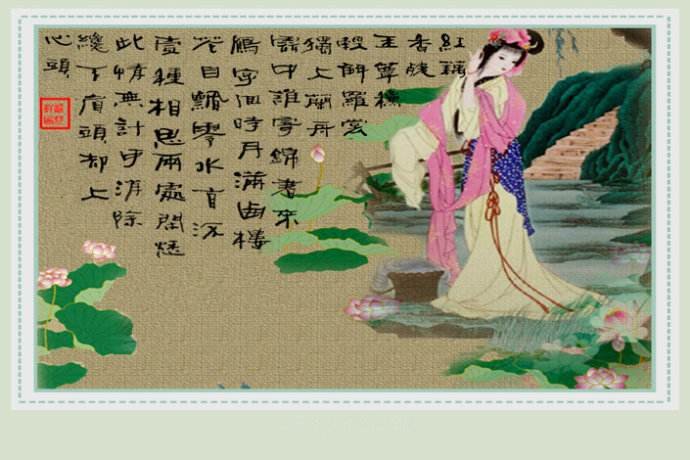 紅藕
香殘
玉簟穐
輕解羅裳
獨上蘭舟
雲中誰寄錦書來
鴈字回時月滿西樓
花自飄零水自流
壹種相思兩處閒愁
此情無計可消除
纔下眉頭却上
心頭